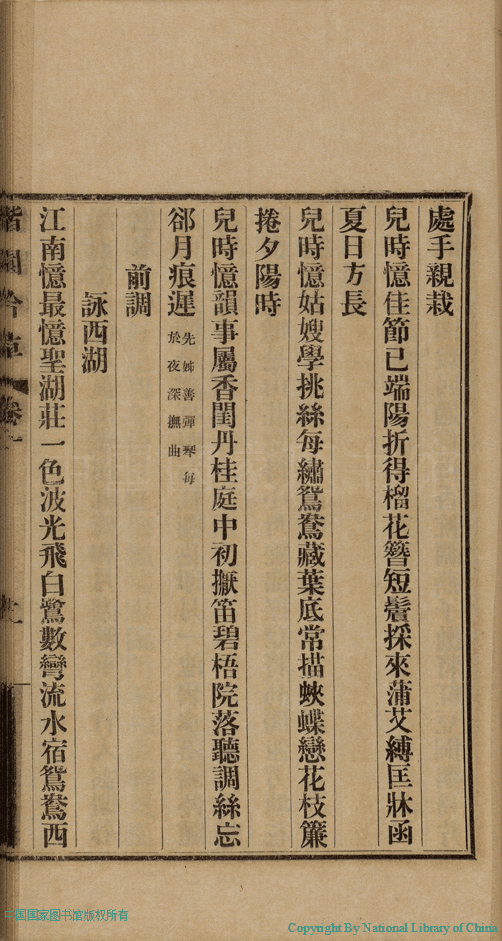 處手親栽
兒時憶佳節已端陽折得榴花簪短鬢採來蒲艾縛匡牀函
夏日方長
兒時憶姑嫂學挑絲每繡鴛鴦藏葉底常描蛺蝶戀花枝簾
捲夕陽時
兒時憶韻事屬香閨丹桂庭中初擫笛碧梧院落聽調絲忘
郤月痕遲先姊善彈琴每
於夜深撫曲
前調
詠西湖
江南憶最憶聖湖莊一色波光飛白鷺數彎流水宿鴛鴦西
中国国家图书馆版权所有
Copyright By National Library of China